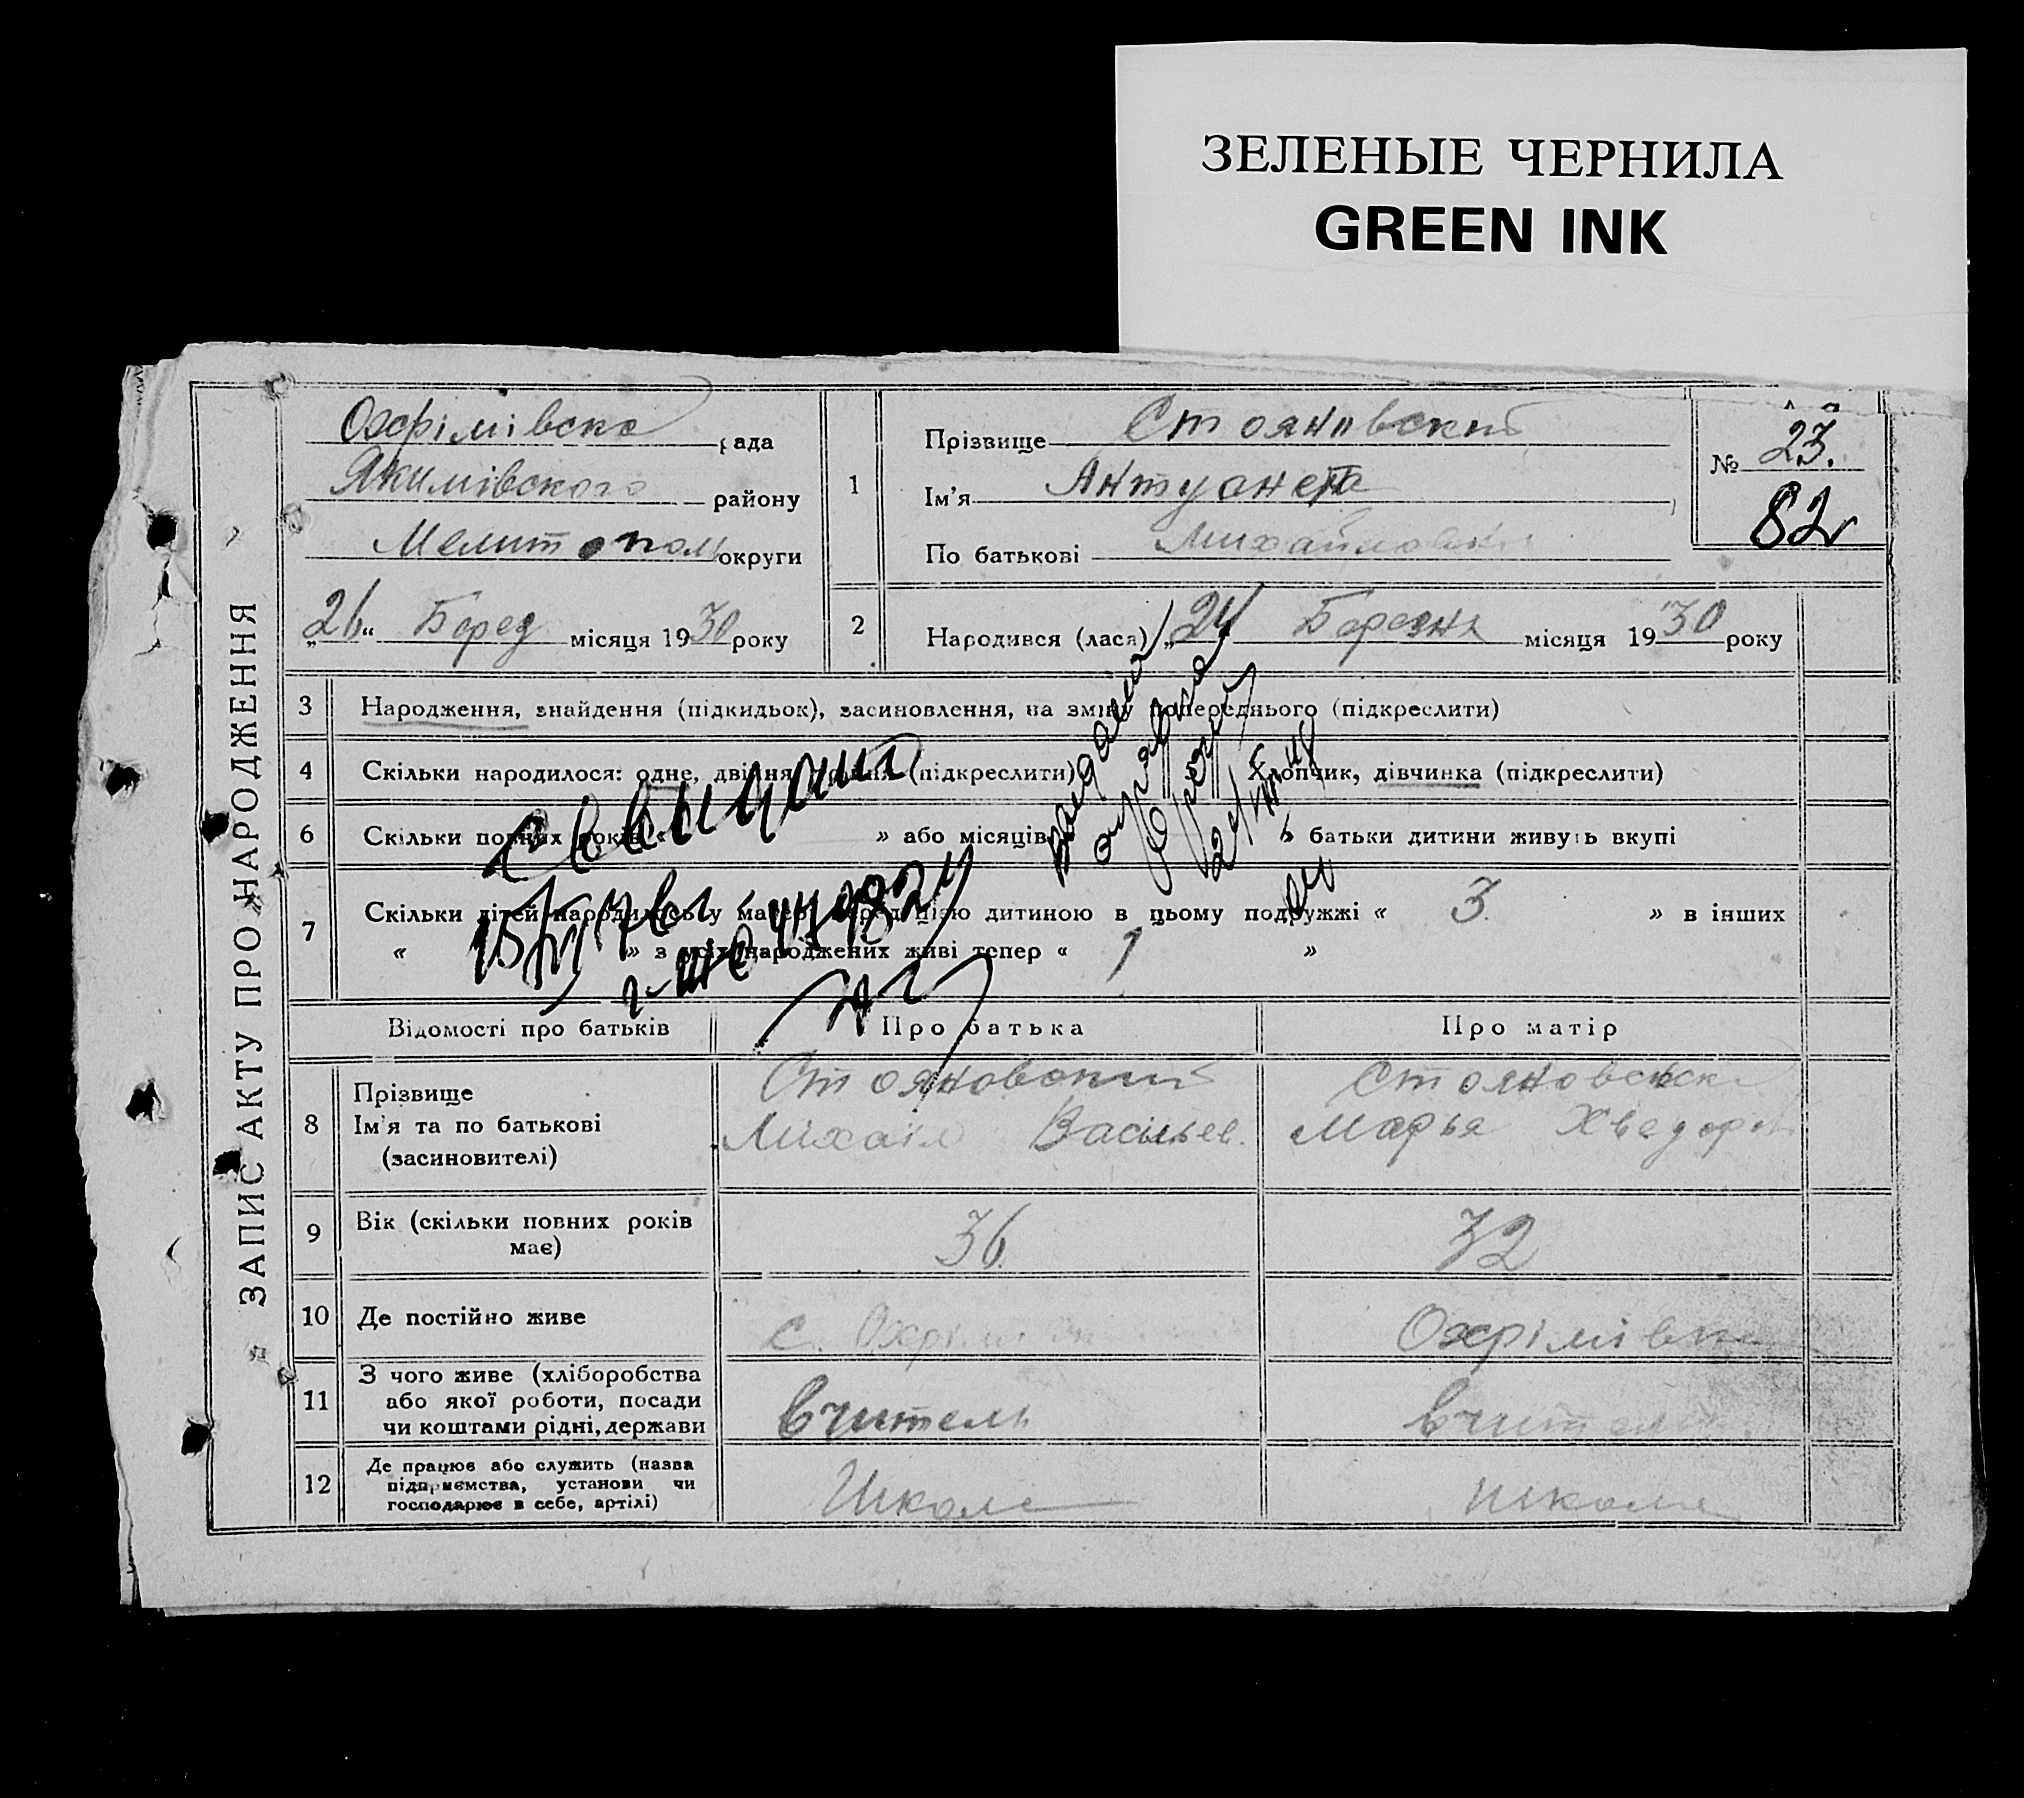 ЗЕЛЕНЫЕ ЧЕРНИЛА
GREEN INK
ЗАПИС АКТУ ПРО НАРОДЖЕННЯ
Охрімівска рада
Якимівского району
Мелитополь округи
„26“ Берез місяця 1930 року
1
Прізвище Стояновский
Ім'я Антуанета
По батькові Михайловна
№ 23.
82
2
Народився (лася) „24 Березня місяця 1930 року
3 Народження, знайдення (підкидьок), засиновлення, на зміну попереднього (підкреслити)
4 Скільки народилося: одне, двійня, трійня (підкреслити) 5 Хлопчик, дівчинка (підкреслити)
6 Скільки повних років « » або місяців батьки дитини живуть вкупі
7 Скільки дітей народилось у матері перед цією дитиною в цьому подружжі « 3 » в інших
« » з усіх народжених живі тепер « 1 »
Відомості про батьків Про батька Про матір
8 Прізвище
Ім'я та по батькові
(засиновителі)
Стояновский
Міхаіл Васильев.
Стояновска
Марья Хведоров
9 Вік (скільки повних років має) 36 32
10 Де постійно живе с. Охрімівка Охрімівка
11 З чого живе (хліборобства
або якої роботи, посади
чи коштами рідні, держави
вчитель вчитель
12 Де працює або служить (назва
підприємства, установи чи
господарює в себе, артілі)
Школа школа